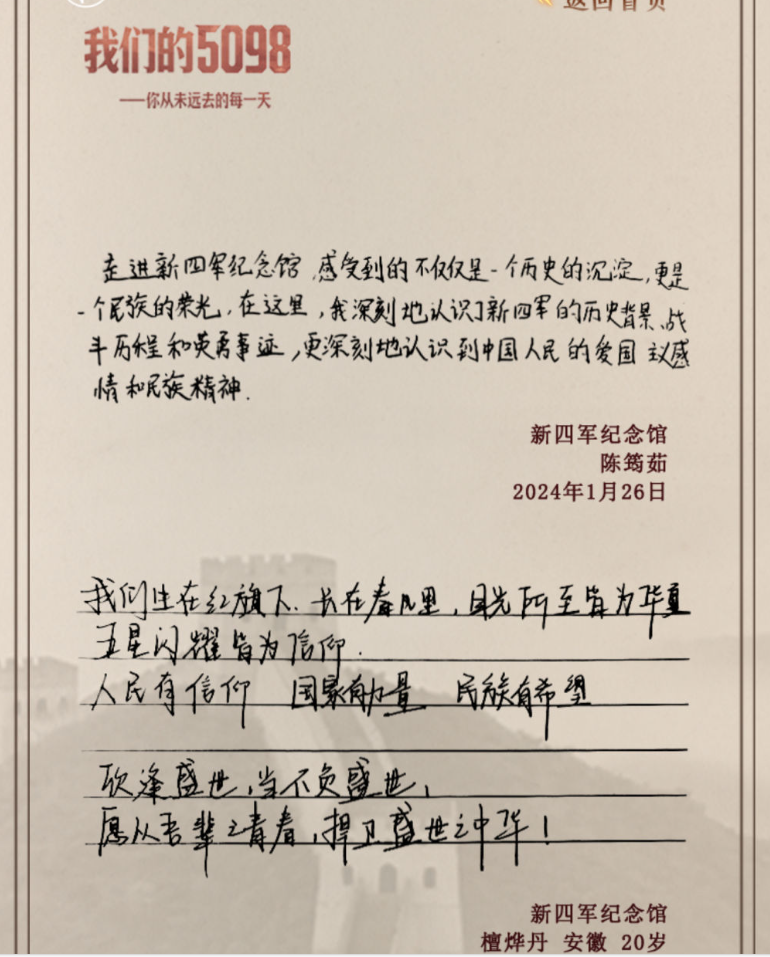 返回首页
我们的5098
——你从未远去的每一天
走进新四军纪念馆,感受到的不仅仅是一个历史的沉淀,更是
一个民族的荣光,在这里,我深刻地认识了新四军的历史背景、战
斗历程和英勇事迹,更深刻地认识到中国人民的爱国主义感
情和民族精神.
新四军纪念馆
陈筠茹
2024年1月26日
我们生在红旗下.长在春风里,目光所至皆为华夏
五星闪耀皆为信仰.
人民有信仰 国家有力量 民族有希望
欣逢盛世,当不负盛世,
愿以吾辈之青春,捍卫盛世之中华!
新四军纪念馆
檀烨丹 安徽 20岁